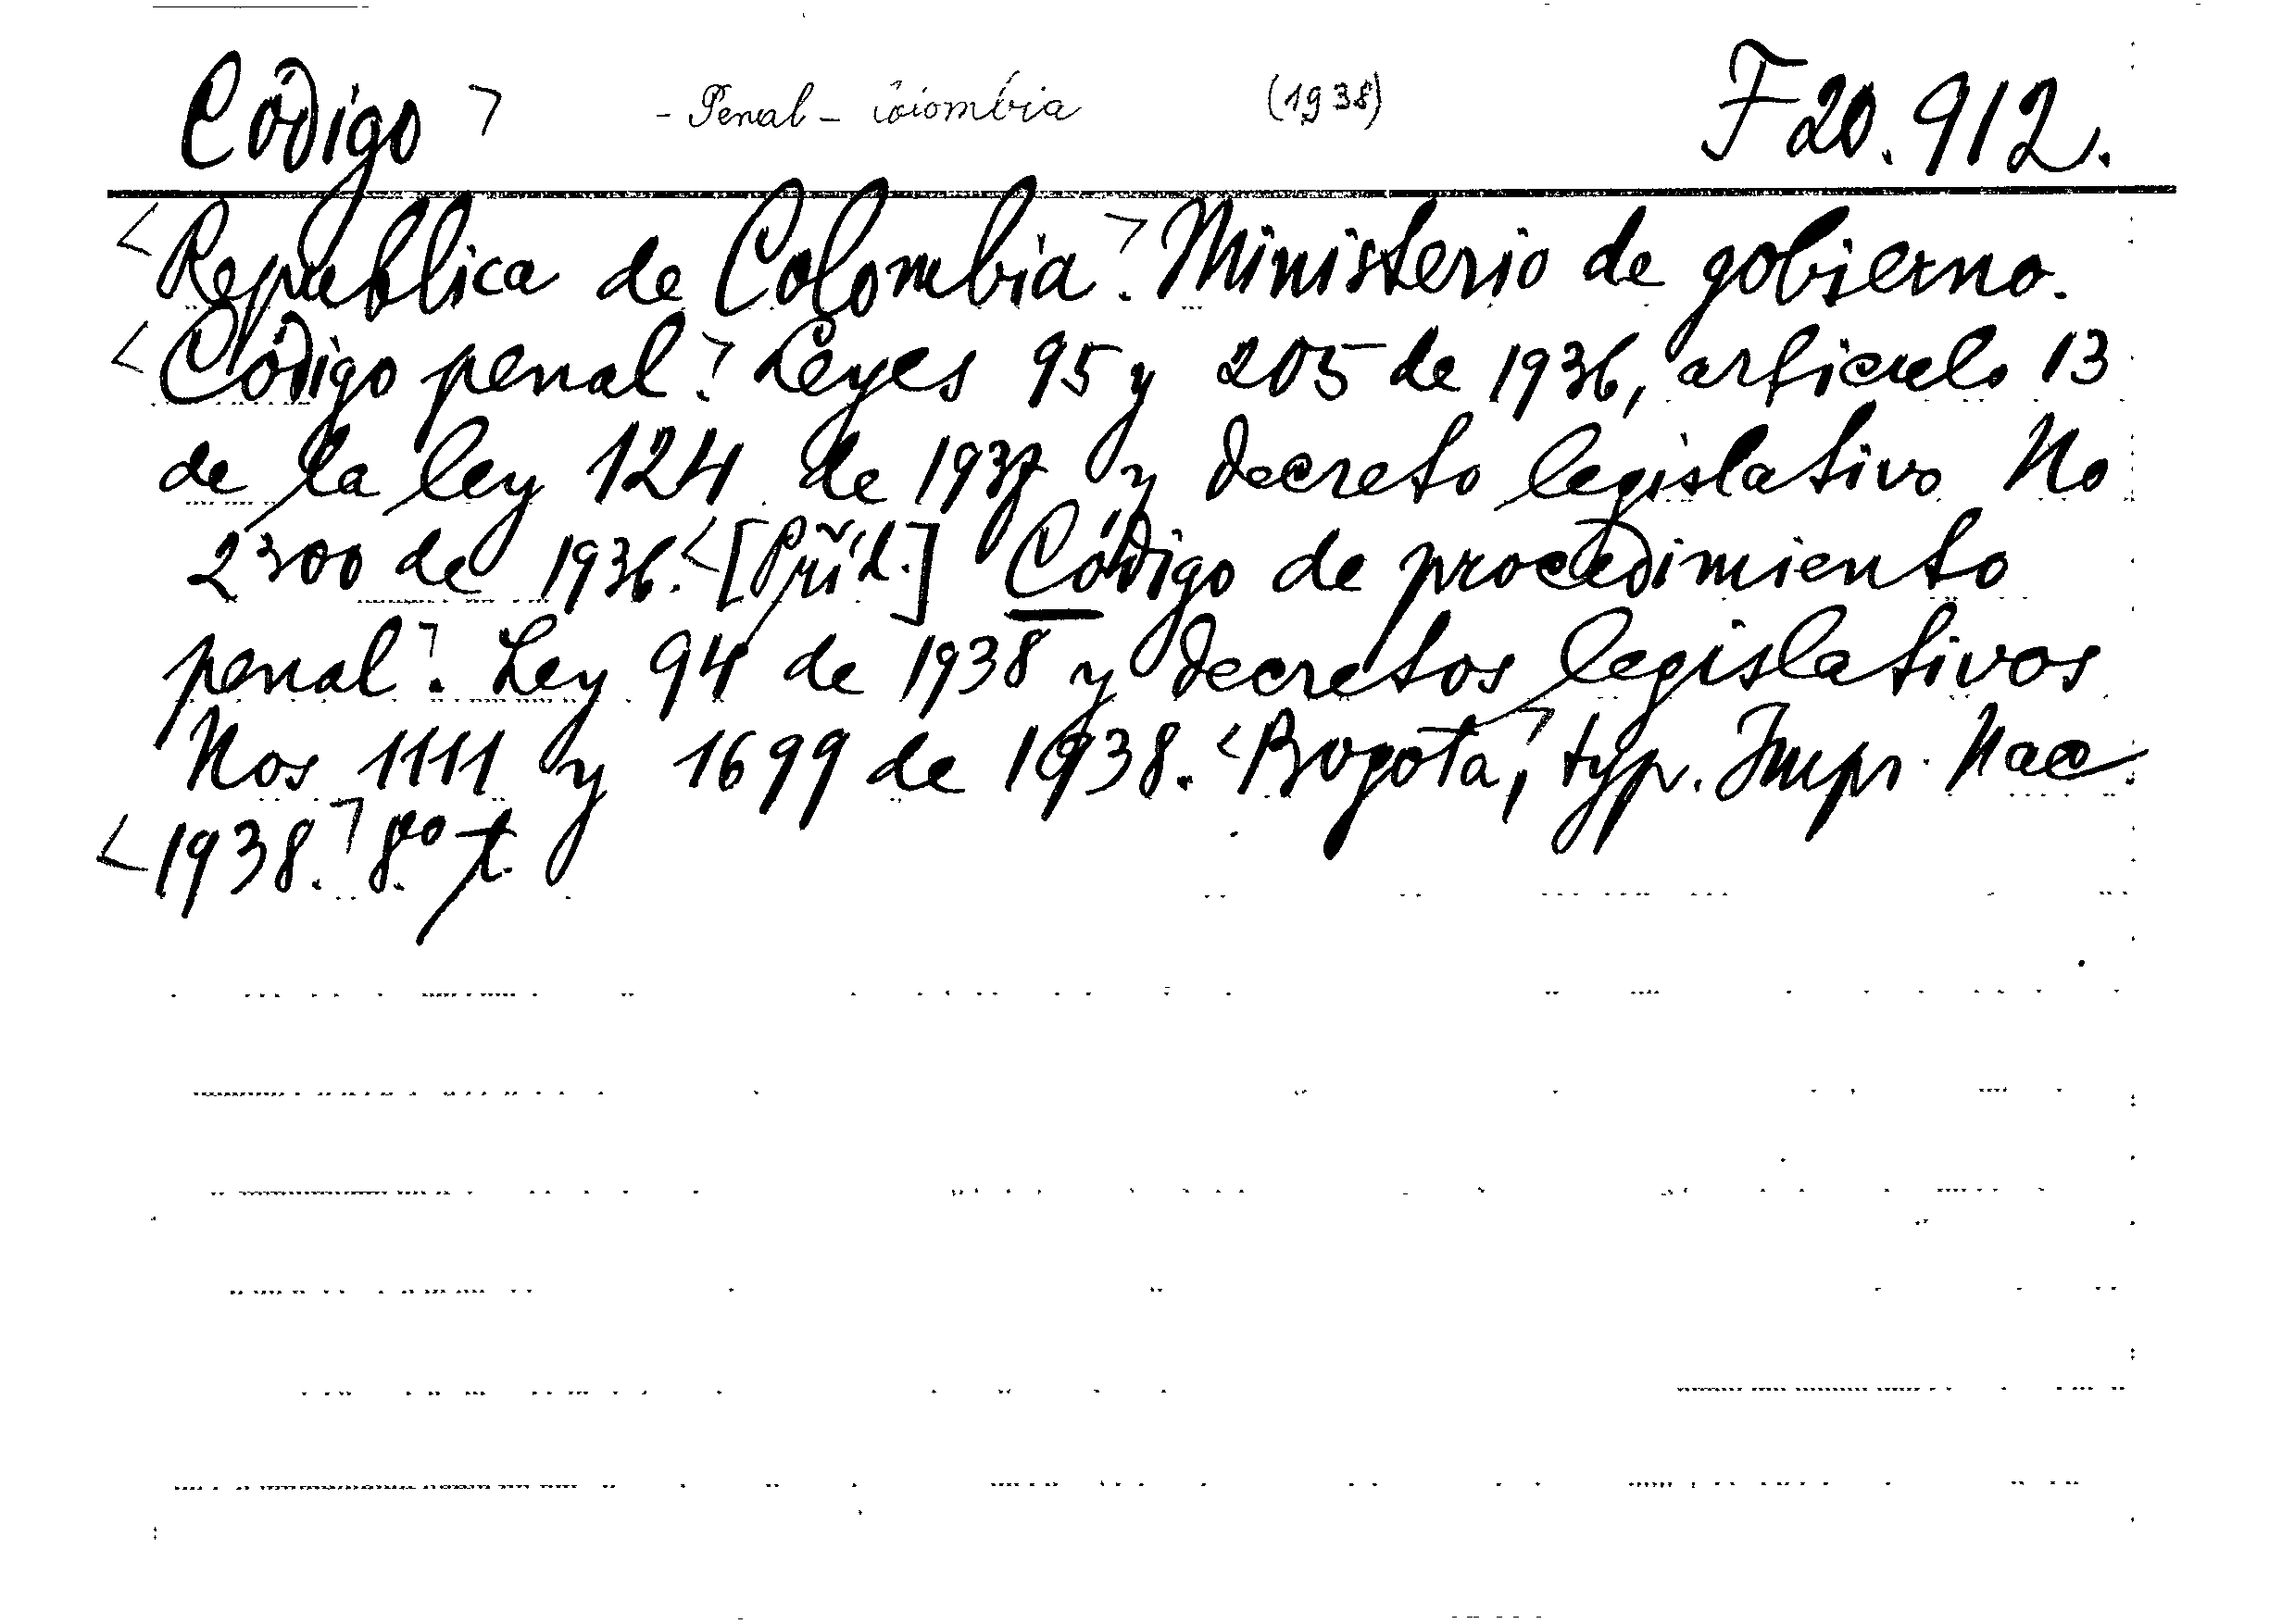 Código ㄱ - Penal - Colombia (1938) F 20.912.
<Republica de Colombia.ㄱ Ministerio de gobierno.
<Código penal.ㄱ Leyes 95 y 205 de 1936, articulo 13
de la ley 124 de 1937 y decreto legislativo No
2300 de 1936. < [Přid.] Código de procedimiento
penal.ㄱ Ley 94 de 1938 y decretos legislativos
Nos 1111 y 1699 de 1938. <Bogotá,ㄱ typ. Impr. Nac.
<1938.ㄱ 8.º